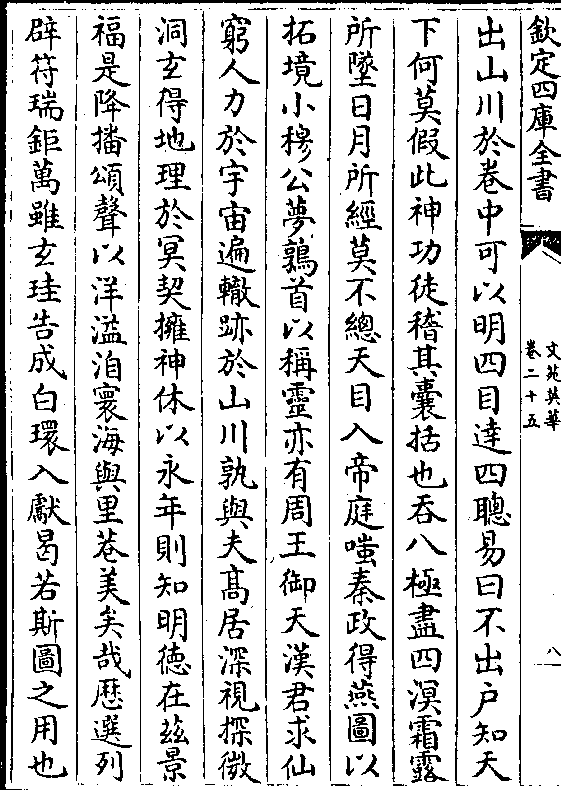 欽定四庫全書
文苑英華
卷二十五
八
出山川於卷中可以明四目達四聰易曰不出户知天
下何莫假此神功徒稽其囊括也吞八極盡四溟霜露
所墜日月所經莫不總天目入帝庭嗤秦政得燕圖以
拓境小穆公夢鶉首以稱靈亦有周王御天漢君求仙
窮人力於宇宙遍轍跡於山川孰與夫髙居深視探微
洞玄得地理於冥契擁神休以永年則知明徳在兹景
福是降播頌聲以洋溢洎寰海與里巷美矣哉歴選列
辟符瑞鉅萬雖玄珪告成白環入獻曷若斯圖之用也